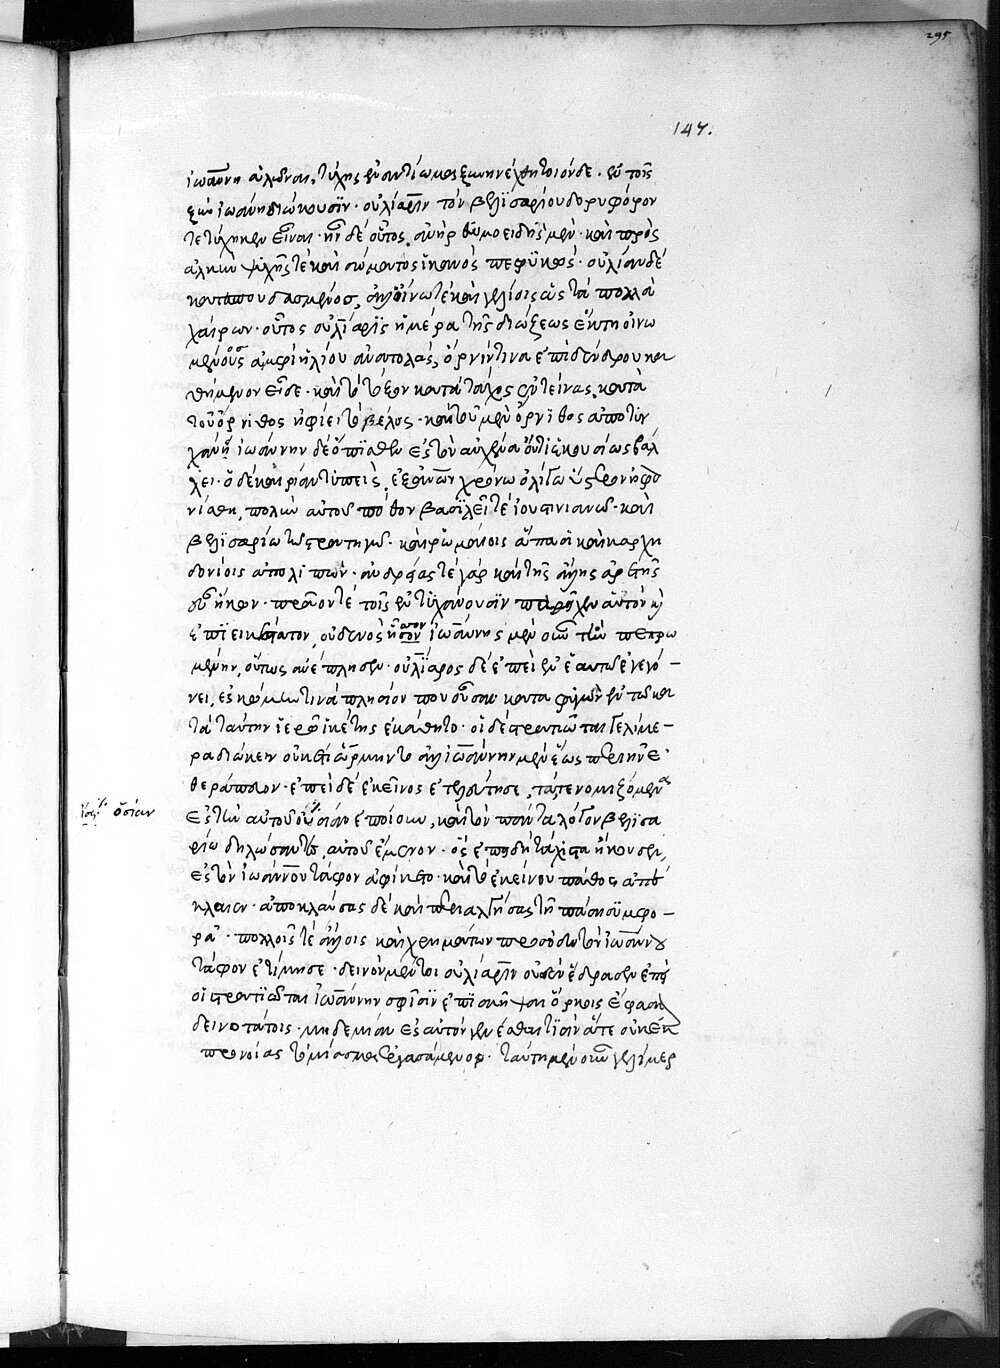 295
147.
ἰωάννη ἁλῶναι, τύχης ἐναντίωμα ξυνηνέχθη τοιόνδε. ἐν τοῖς
ξὺν ἰωάννη διώκουσϊν· οὐλίαριν τὸν βελϊσαρίου δορυφόρον
τετύχηκεν εἶναι· ἦν δὲ οὗτος ἀνὴρ θυμοειδὴς μὲν· καὶ πρὸς
ἀλκὴν ψυχῆς τὲ καὶ σώματος ἱκανὸς πεφϋκὼς· οὐ λίαν δὲ
κατεσπουδασμένος, ἀλλ' οἴνω τὲ καὶ γελοίοις ὡς τὰ πολλὰ
χαίρων· οὗτος οὐλίαρϊς ἡμέρα τῆς διώξεως ἕκτη οἰνω
μένος ἀμφὶ ἡλίου ἀνατολὰς, ὄρνιν τινα ἐπὶ δένδρου κα
θήμενον εἶδε· καὶ τὸ τόξον κατὰ τάχος ἐντείνας, κατὰ
τοῦ ὄρνιθος ἠφίει τὸ βέλος· καὶ τοῦ μὲν ὄρνιθος ἀποτυγ
χάνει ἰωάννην δὲ ὄπϊσθεν ἐς τὸν αὐχένα οὔτι ἑκουσίως βάλ
λει· ὁ δὲ καιρίαν τυπεὶς, ἐξ ἐκείνου χρόνω ὀλίγω ὕστερον ἠφα
νίσθη, πολὺν αὐτοῦ πόθον βασϊλεῖ τὲ ἰουστινιανῶ· καὶ
βελϊσαρίω τῶ στρατηγῶ· καὶ ῥωμαίοις ἅπασϊ καὶ καρχη
δονίοις ἀπολιπὼν· ἀνδρείας τὲ γὰρ καὶ τῆς ἄλλης ἀρετῆς
εὖ ἥκων· πρᾶον τὲ τοῖς ἐντϋγχάνουσϊν παρεῖχεν αὑτὸν κ̀
ἐπϊεικέστατον, οὐδενὸς ἧσσον ἰωάννης μὲν οὖν τὴν πεπρω
μένην, οὕτως ἀνέπλησεν· οὐλίαρος δὲ ἐπεὶ ἐν ἑαυτῶ ἐγεγό-
νει, ἐς κώμην τινὰ πλησίον που οὖσαν καταφυγὼν ἐν τῶ κα
τὰ ταύτην ἱερῶ ἱκέτης ἐκάθητο· οἱ δὲ στρατιῶται γελίμε-
ρα διώκειν οὐκέτι ὥρμηντο ἀλλ' ἰωάννην μὲν ἕως περιῆν ἐ
θεράπευον· ἐπεὶ δὲ ἐκεῖνος ἐτελεύτησε, τά τε νομιζόμενα
ἐς τὴν αὐτοῦ οὐσίαν ἐποίουν, καὶ τὸν πάντα λόγον βελϊσα
ρίω δηλώσαντες, αὐτοῦ ἔμενον· ὃς ἐπειδὴ τάχιστα ἤκουσεν,
ἐς τὸν ἰωάννου τάφον ἀφίκετο· καὶ τὸ ἐκείνου πάθος ἀπέ
κλαιεν· ἀποκλαύσας δὲ καὶ περιαλγήσας τῆ πάση ξυμφο-
ρᾶ· πολλοῖς τὲ ἄλλοις καὶ χρημάτων προσόδω τὸν ἰωάννου
τάφον ἐτίμησε· δεινὸν μέντοι οὐλίαριν οὐδὲν ἔδρασεν ἐπεὶ
οἱ στρατϊῶται ἰωάννην σφίσϊν ἐπϊσκῆψαι ὅρκοις ἔφασαν
δεινοτάτοις· μηδεμίαν ἐς αὐτὸν γενέσθαι τίσϊν ἅτε οὐκ ἐκ
προνοίας τὸ μίασμα ἐργασάμενον· ταύτη μὲν οὖν γελίμερ
ἴσως ὁσίαν